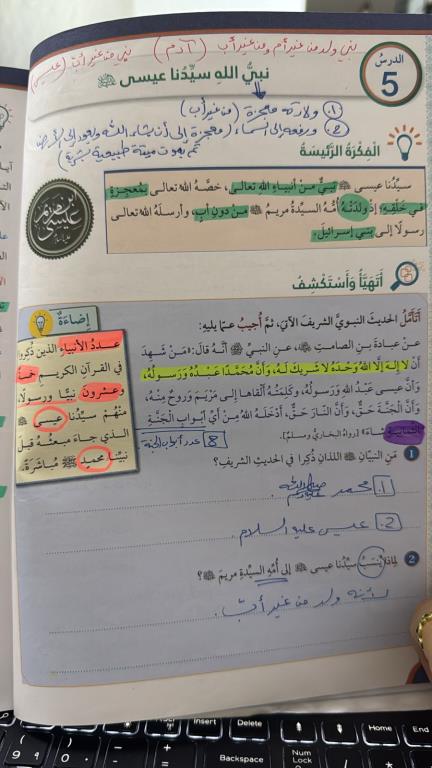 نبي ولد من غير أم ومن غير أب (آدم) نبي من غير أب (عيسى)
الدرسُ
5
نبيُّ اللهِ سيِّدُنا عيسى ﷺ
1. ولادته معجزة (من غير أب)
2. ورفعه إلى السماء / معجزة إلى أن يشاء الله ويعود إلى الأرض
ثم يموت ميتة طبيعية بشرية
الفِكْرَةُ الرَّئيسَةُ
سيِّدُنا عيسى ﷺ نبيٌّ مِنْ أنبياءِ اللهِ تعالى، خصَّهُ اللهُ تعالى بمُعجزةٍ
في خَلْقِهِ؛ إذْ ولدَتْهُ أُمُّهُ السيِّدةُ مريمُ ﷺ مِنْ دونِ أبٍ، وأرسلَهُ اللهُ تعالى
رسولًا إلى بني إسرائيلَ.
عيسى
ابن مريم
أَتَهَيَّأُ وَأَسْتَكْشِفُ
إضاءةٌ
عددُ الأنبياءِ الذينَ ذُكِروا
في القرآنِ الكريمِ خمسةٌ
وعشرونَ نبيًّا ورسولًا،
منهُمْ سيِّدُنا عيسى ﷺ
الذي جاءَ مبعثُهُ قبلَ
نبيِّنا محمدٍ ﷺ مُباشَرةً.
أَتَأَمَّلُ الحديثَ النبويَّ الشريفَ الآتيَ، ثمَّ أُجيبُ عمّا يليهِ:
عنْ عبادةَ بنِ الصامتِ، عنِ النبيِّ ﷺ أنَّهُ قالَ: «مَنْ شَهِدَ
أَنْ لا إلهَ إلَّا اللهُ وَحْدَهُ لا شريكَ لهُ، وأنَّ مُحَمَّدًا عَبْدُهُ وَرَسولُهُ،
وأنَّ عيسى عَبْدُ اللهِ ورَسولُهُ، وكَلِمَتُهُ أَلْقاها إلى مَرْيَمَ وَروحٌ مِنْهُ،
وأنَّ الجَنَّةَ حَقٌّ، وأنَّ النّارَ حَقٌّ، أدْخَلَهُ اللهُ مِنْ أَيِّ أبوابِ الجَنَّةِ
الثمانيةِ شاءَ» [رواهُ البخاريُّ ومسلمٌ].
8 عدد أبواب الجنة
1 مَنِ النبيّانِ اللذانِ ذُكِرا في الحديثِ الشريفِ؟
1. محمد صلى الله عليه وسلم
2. عيسى عليه السلام
2 لماذا يُنسَبُ سيِّدُنا عيسى ﷺ إلى أُمِّهِ السيِّدةِ مريمَ ﷺ؟
لأنه ولد من غير أب.
Insert
Delete
Home
End
Backspace
Num
Lock